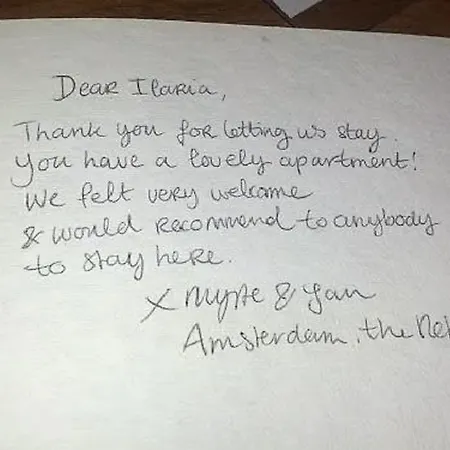 Dear Ilaria,
Thank you for letting us stay.
You have a lovely apartment!
We felt very welcome
& would recommend to anybody
to stay here.
x Myrte & Jan
Amsterdam, the Ne